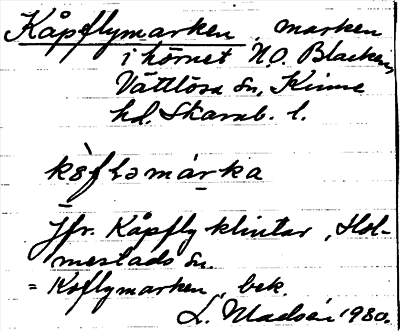 Kåpflymarken, marken
i hörnet N.O. Blacken,
Vättlösa sn, Kinne
hd. Skarab. l.
kɵ̀flɘmárka
Jfr. Kåpfly klintar, Hol-
mestads sn.
= Koflymarken, bek.
L. Madsén 1930.